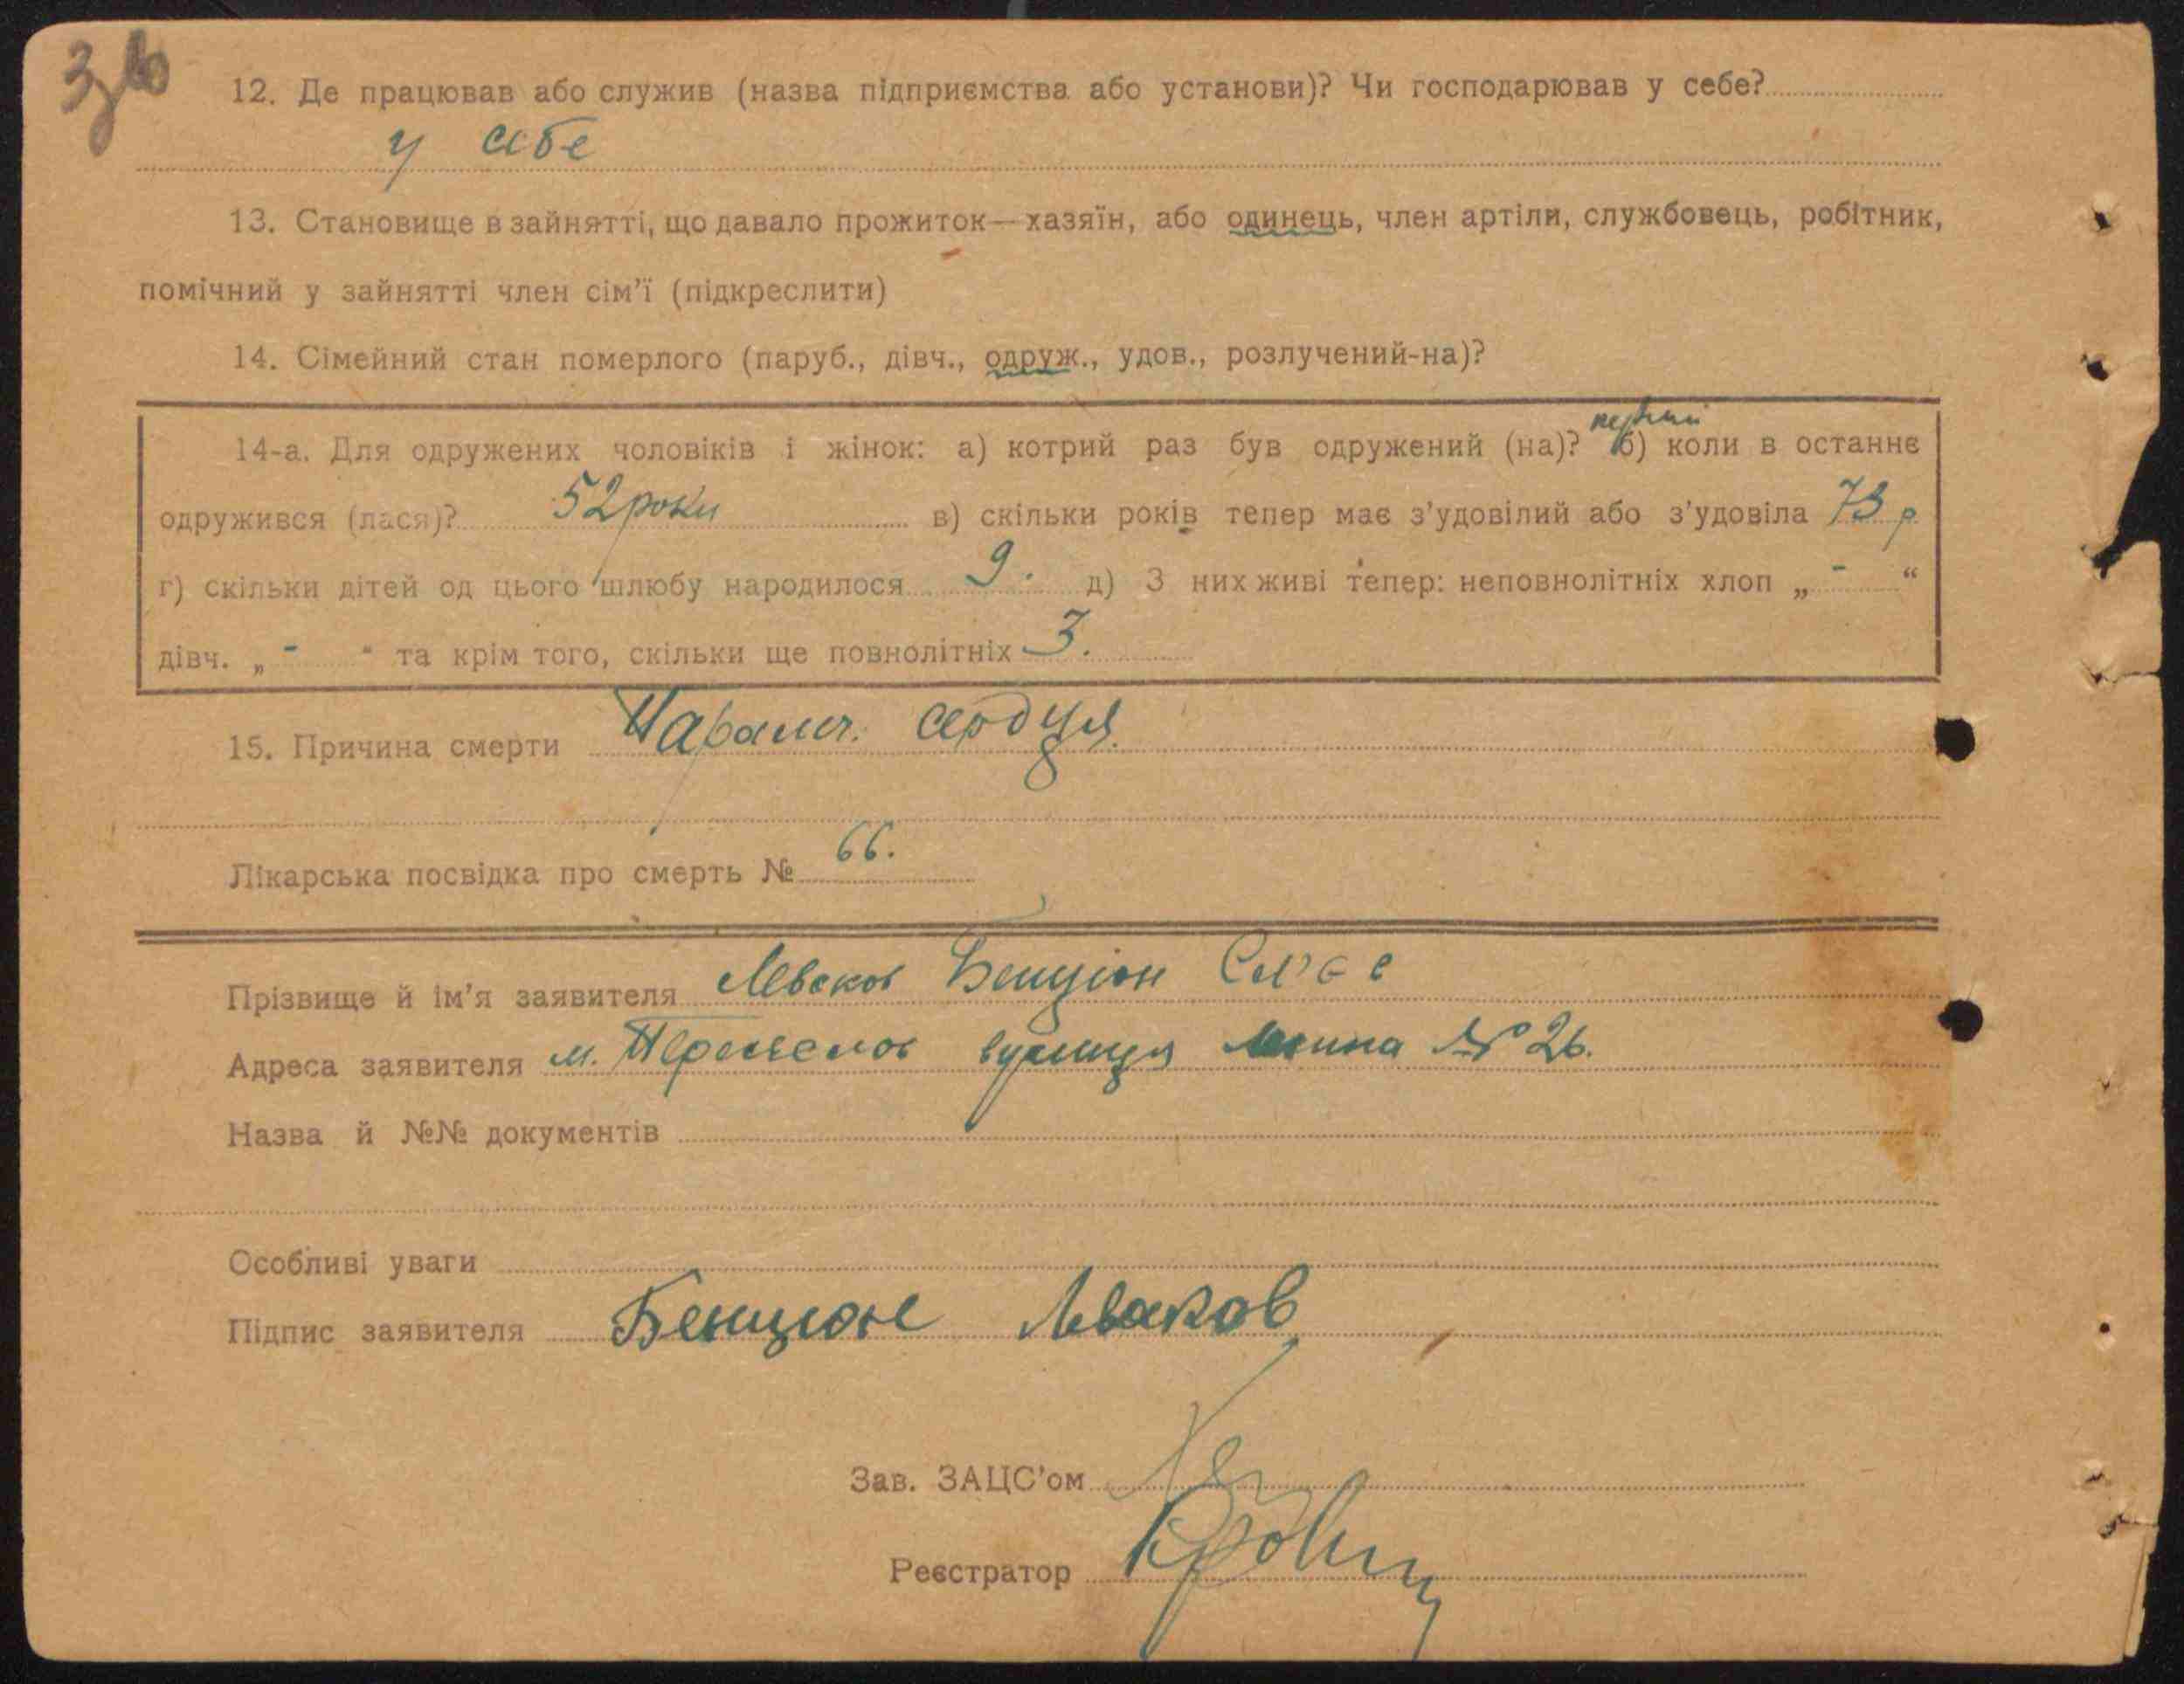 12. Де працював або служив (назва підприємства або установи)? Чи господарював у себе?
у себе
13. Становище в зайнятті, що давало прожиток—хазяїн, або одинець, член артіли, службовець, робітник,
помічний у зайнятті член сім’ї (підкреслити)
14. Сімейний стан померлого (паруб., дівч., одруж., удов., розлучений-на)?
14-а. Для одружених чоловіків і жінок: а) котрий раз був одружений (на)? перший б) коли в останнє
одружився (лася)? 52 роки в) скільки років тепер має з’удовілий або з’удовіла 73 р
г) скільки дітей од цього шлюбу народилося 9. д) З них живі тепер: неповнолітніх хлоп „ - “
дівч. „ - “ та крім того, скільки ще повнолітніх 3.
15. Причина смерти Параліч. сердця.
Лікарська посвідка про смерть № 66.
Прізвище й ім’я заявителя Бенціон
Адреса заявителя м. вулиця Леніна № 26.
Назва й №№ документів
Особливі уваги
Підпис заявителя Бенцион
Зав. ЗАЦС’ом
Реєстратор